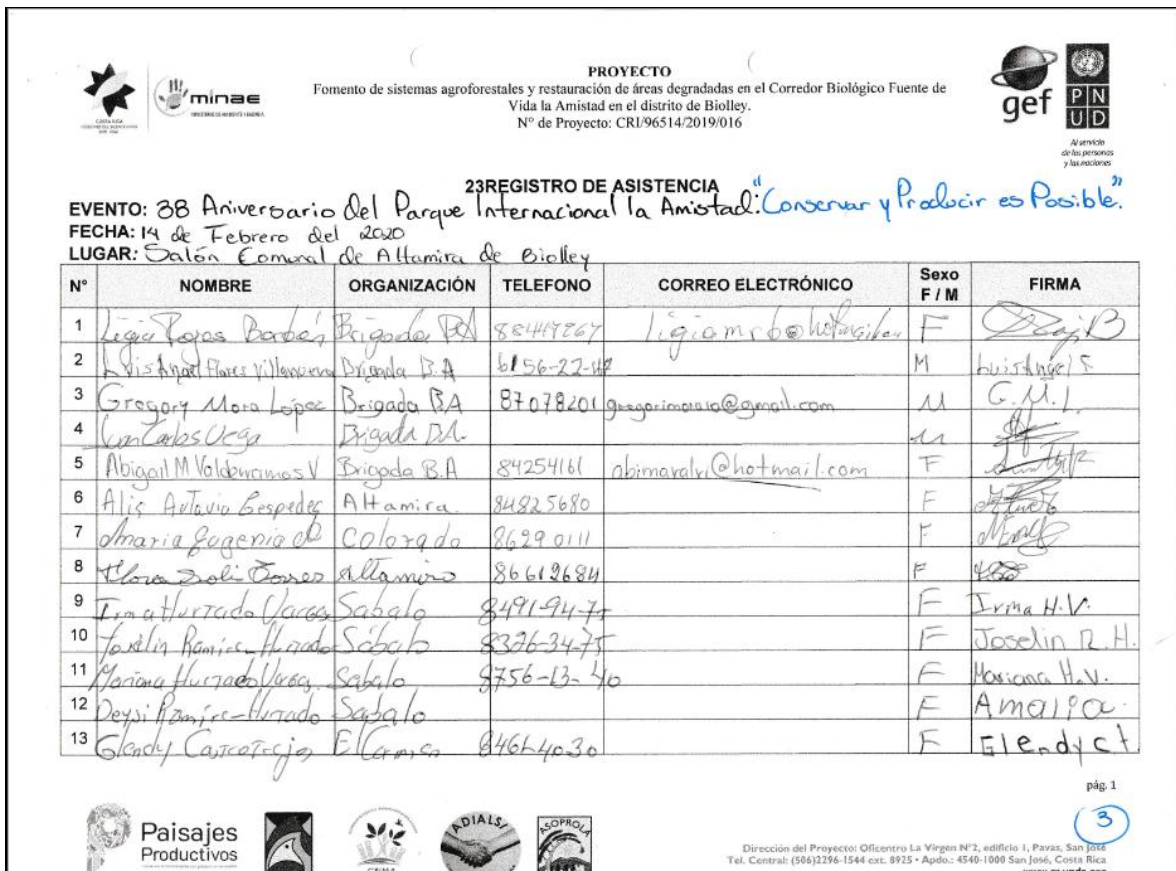 PROYECTO
Fomento de sistemas agroforestales y restauración de áreas degradadas en el Corredor Biológico Fuente de
Vida la Amistad en el distrito de Biolley.
N° de Proyecto: CRI/96514/2019/016
minae
gef
PN
UD
Al servicio
de las personas
y las naciones
23REGISTRO DE ASISTENCIA
EVENTO: 38 Aniversario del Parque Internacional la Amistad: "Conservar y Producir es Posible."
FECHA: 14 de Febrero del 2020
LUGAR: Salón Comunal de Altamira de Biolley
N° NOMBRE ORGANIZACIÓN TELEFONO CORREO ELECTRÓNICO Sexo F / M FIRMA
1 Ligia Rojas Brigada F
2 Luis Angel Flores Villanueva Brigada B.A 6156-22-42 M Luis Angel F
3 Gregory Mora López Brigada B.A 87078201 M G.M.L
4 Juan Carlos Vega Brigada B.A. M
5 Abigail M Valderramos V Brigada B.A 84254161 abimavalvi@hotmail.com F
6 Altamira 84825680 F
7 Maria Eugenia Colorado 86290111 F
8 Flora Altamira 86612684 F
9 Irma Hurtado Vargas Sabalo 8491-94-75 F Irma H.V.
10 Joselin Ramirez Hurtado Sábalo 8326-34-75 F Joselin R.H.
11 Mariana Hurtado Vargas Sabalo 8756-13-40 F Mariana H.V.
12 Deysi Ramirez Hurtado Sabalo F Amalia
13 Glendy El Carmen F Glendyct
pág. 1
3
Paisajes
Productivos
ADIALS
ASOPROLA
Dirección del Proyecto: Oficentro La Virgen N°2, edificio 1, Pavas, San José
Tel. Central: (506)2296-1544 ext. 8925 • Apdo.: 4540-1000 San José, Costa Rica